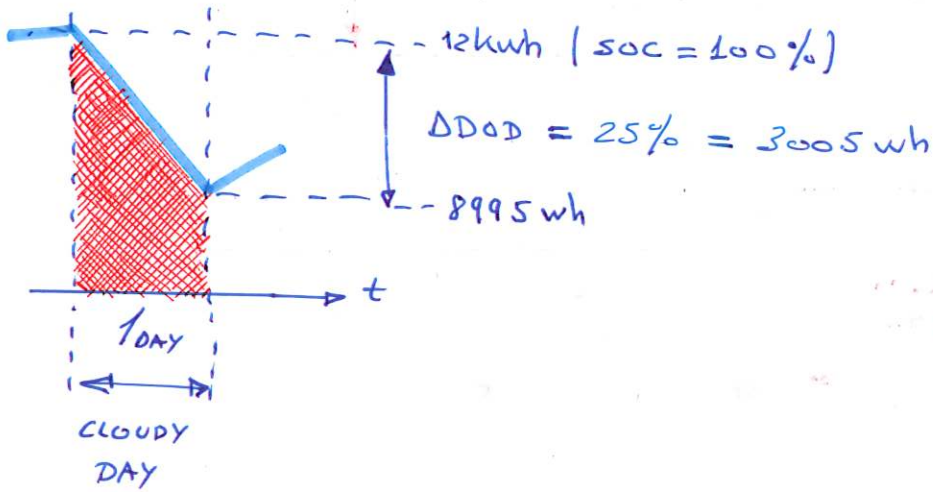 12kwh (SOC = 100%)
ΔDOD = 25% = 3005 wh
8995 wh
t
1 DAY
CLOUDY
DAY